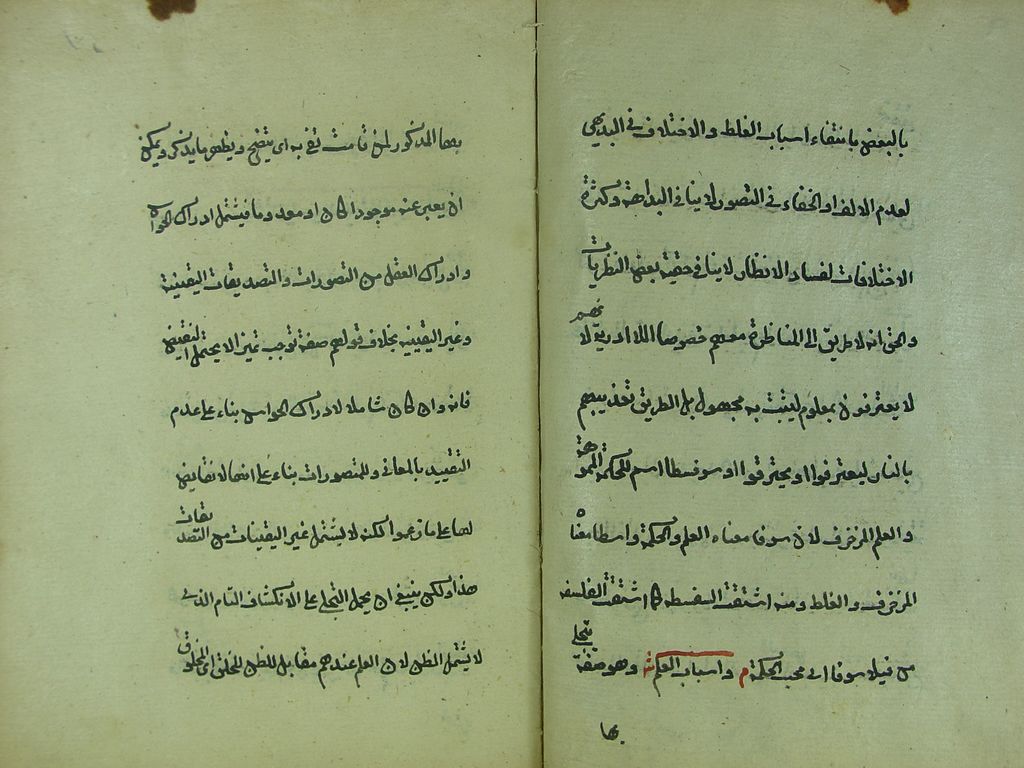 بالبعض بانتفاء اسباب الغلط والاختلاف في البديهي
لعدم الالف او الخفاء في التصور لا ينافي البداهة وكثرة
الاختلافات لفساد الانظار لا ينافي حقية بعض النظريات
والحق انه لا طريق الى المناظرة معهم خصوصا اللاادرية لانهم
لا يعترفون بمعلوم ليثبت به مجهول بل الطريق تعذيبهم
بالنار ليعترفوا او يحترقوا وسوفسطا اسم للحكمة المموهة
والعلم المزخرف لان سوفا معناه العلم والحكمة واسطا معناه
المزخرف والغلط ومنه اشتقت السفسطة كما اشتقت الفلسفه
من فيلاسوفا اي محب الحكمة م واسباب العلم ش وهو صفة يتجلى
بها
بها المذكور لمن قامت هي به اي يتضح ويظهر ما يذكر ويمكن
ان يعبر عنه موجودا كان او معدوما فيشتمل ادراك الحواس
وادراك العقل من التصورات والتصديقات اليقينية
وغير اليقينيه بخلاف قولهم صفة توجب تميزا لا يحتمل النقيض
فانه وان كان شاملا لادراك الحواس بناء على عدم
التقييد بالمعاني وللتصورات بناء على انها لا نقايض
لها على ما زعموا لكنه لا يشتمل غير اليقينيات من التصديقات
هذا ولكن ينبغي ان يحمل التجلي على الانكشاف التام الذي
لا يشتمل الظن لان العلم عندهم مقابل للظن للخلق اي المخلوق